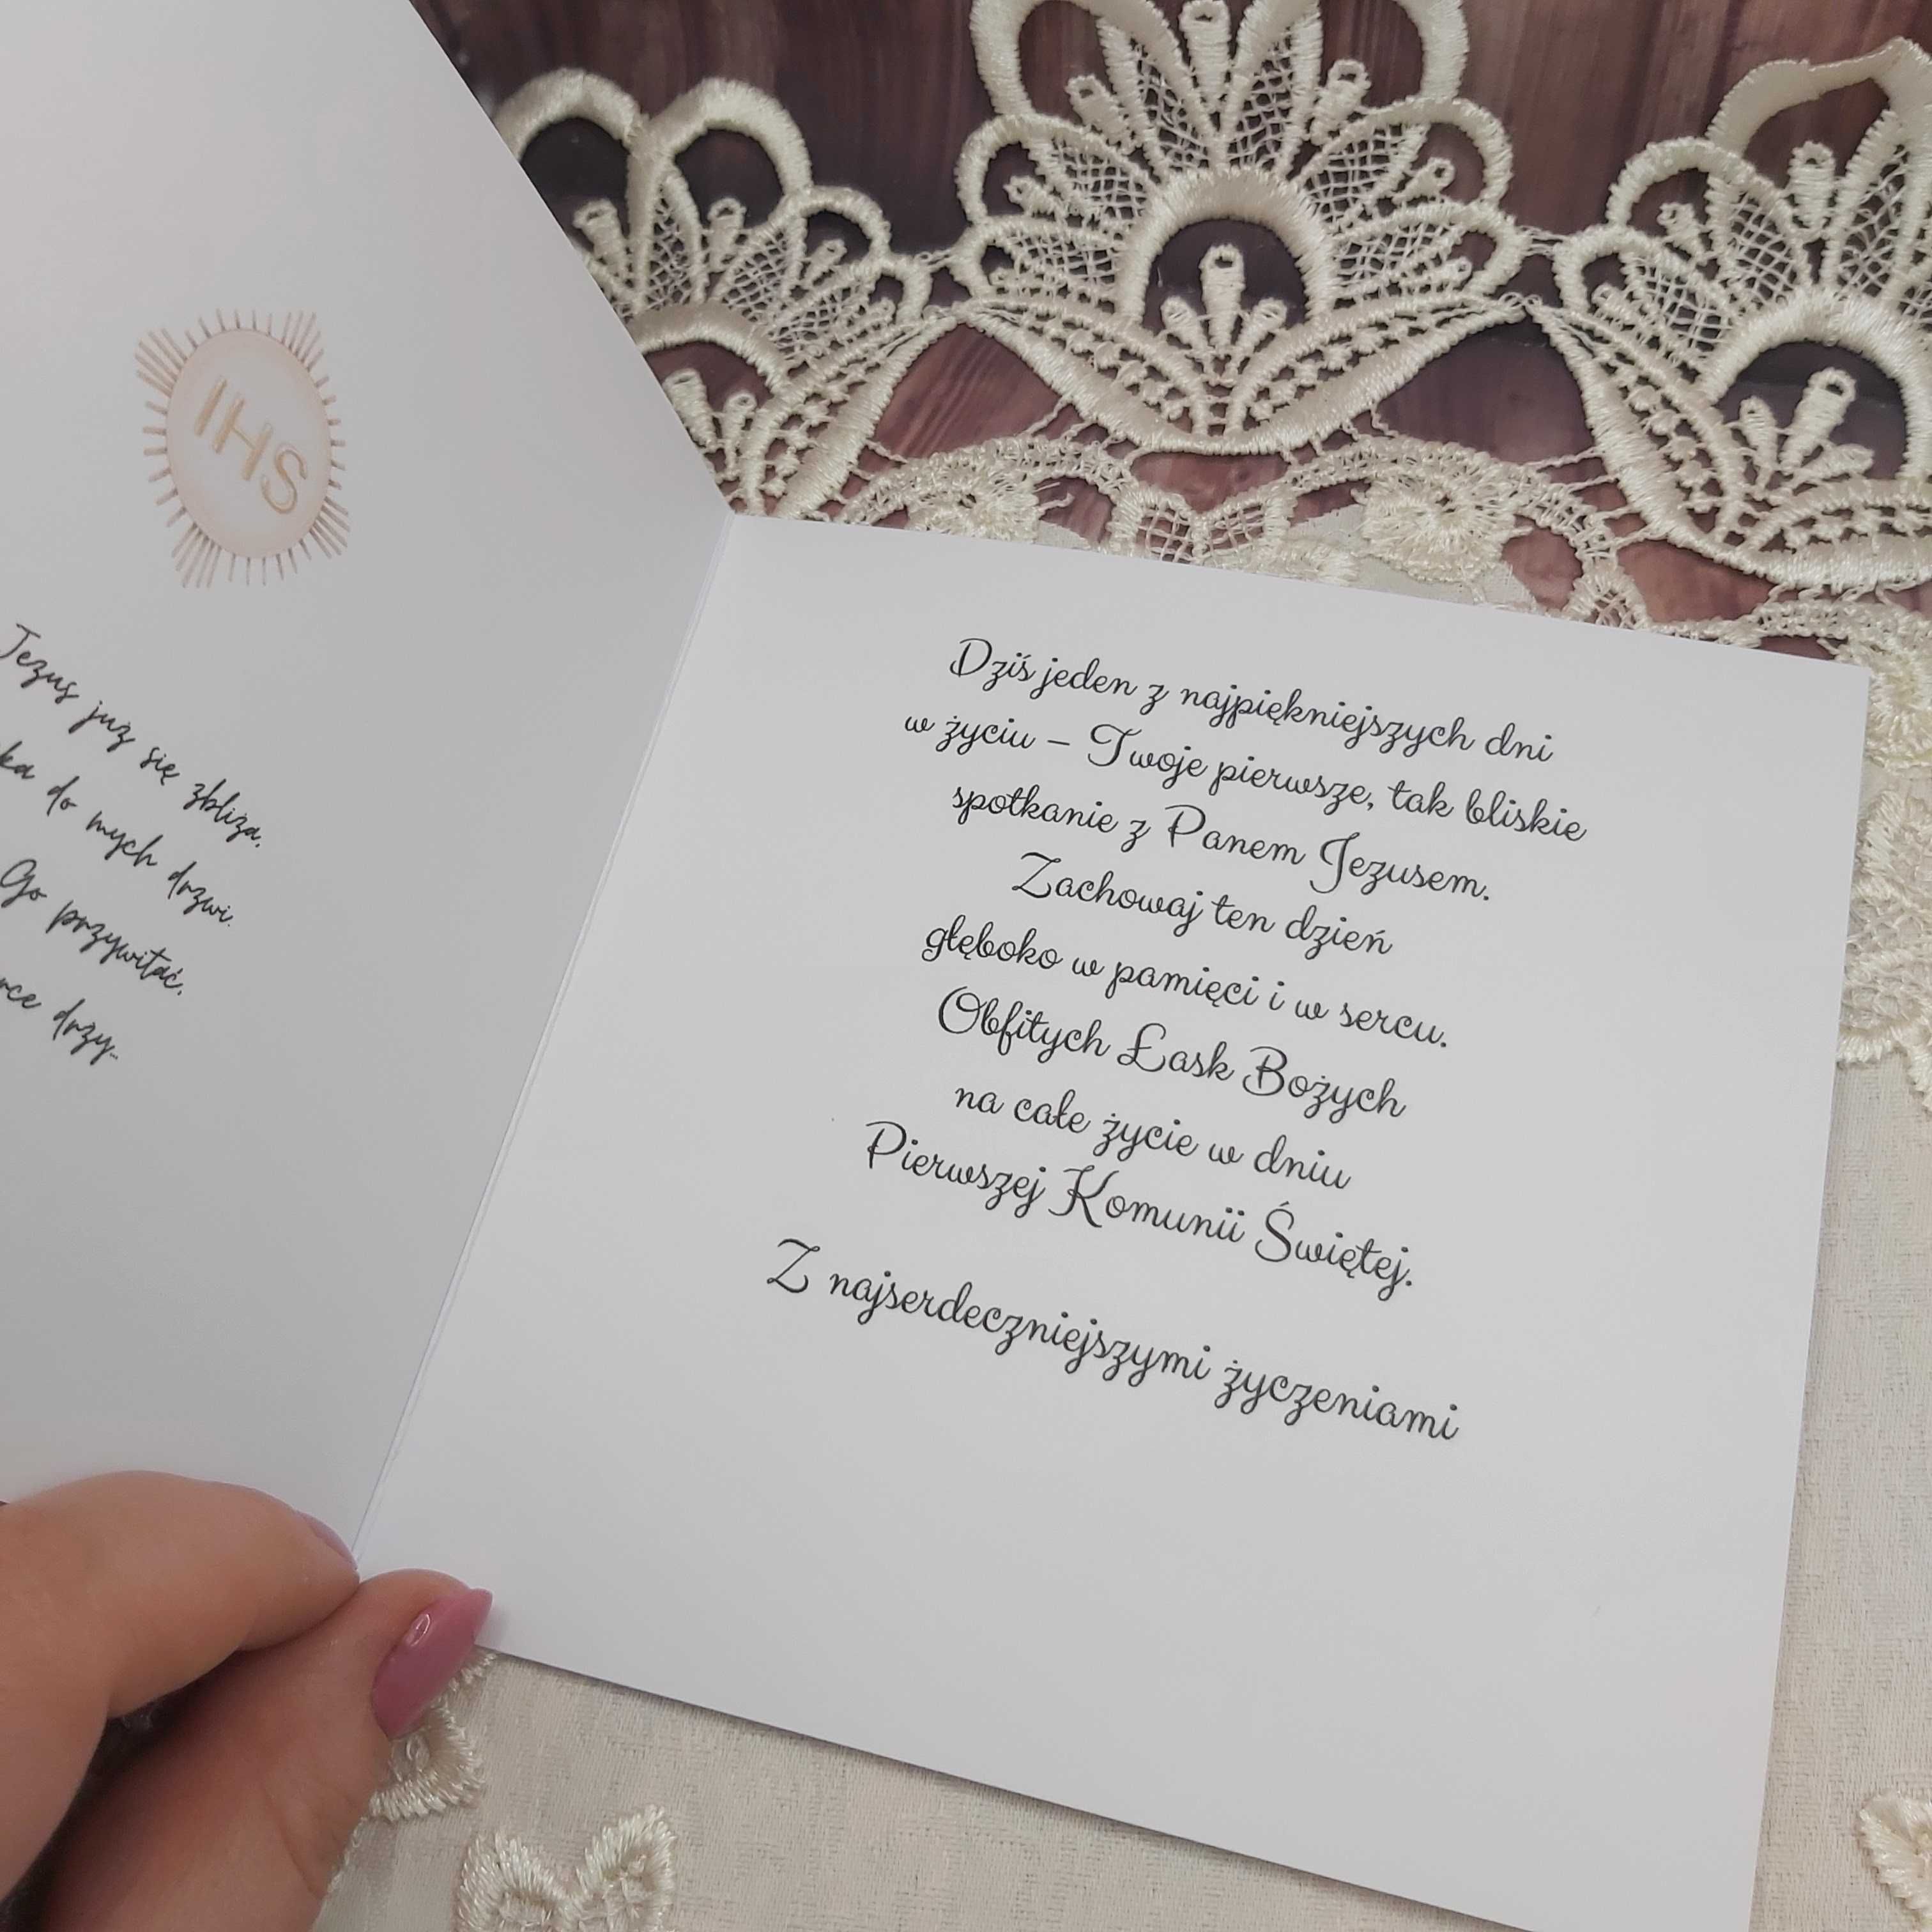 IHS
Jezus już się zbliża,
do mych drzwi.
Go przywitać,
drży...
Dziś jeden z najpiękniejszych dni
w życiu – Twoje pierwsze, tak bliskie
spotkanie z Panem Jezusem.
Zachowaj ten dzień
głęboko w pamięci i w sercu.
Obfitych Łask Bożych
na całe życie w dniu
Pierwszej Komunii Świętej.
Z najserdeczniejszymi życzeniami